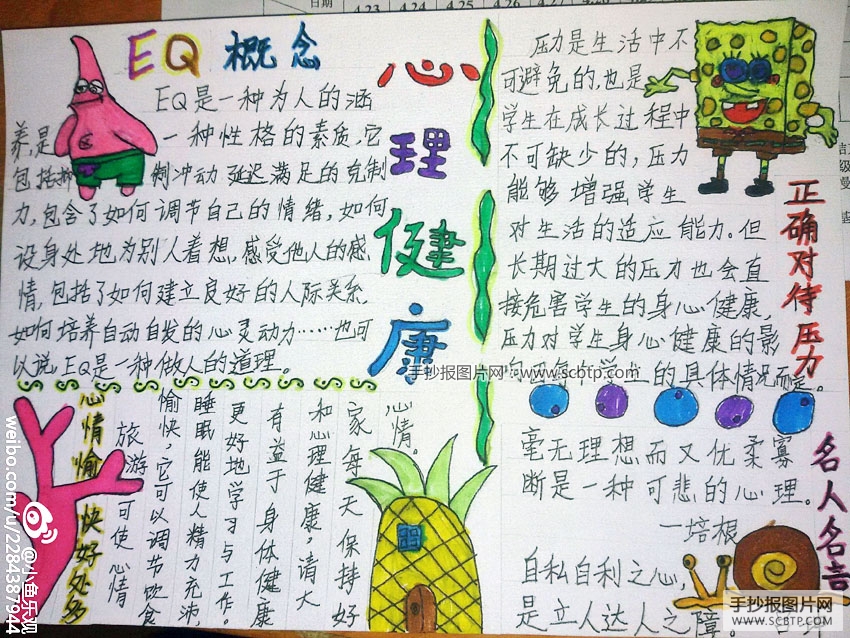 日期 4.23 4.24 4.25 4.26
EQ概念
EQ是一种为人的涵
养,是一种性格的素质,它
包括抑制冲动 延迟满足的克制
力,包含了如何调节自己的情绪,如何
设身处地为别人着想,感受他人的感
情,包括了如何建立良好的人际关系,
如何培养自动自发的心灵动力……也可
以说,EQ是一种做人的道理。
心理健康
压力是生活中不
可避免的,也是
学生在成长过程中
不可缺少的,压力
能够增强学生
对生活的适应能力。但
长期过大的压力也会直
接危害学生的身心健康,
压力对学生身心健康的影
的具体情况而定。
正确对待压力
手抄报图片网:www.scbtp.com
心情愉快好处多
旅游可使心情
愉快,它可以调节饮食
睡眠能使人精力充沛,
更好地学习与工作。
有益于身体健康
和心理健康,请大
家每天保持好
心情。
毫无理想而又优柔寡
断是一种可悲的心理。
一培根
自私自利之心,
是立人达人之障
名人名言
weibo.com/u/2284387944
@小鱼乐观
手抄报图片网
WWW.SCBTP.COM